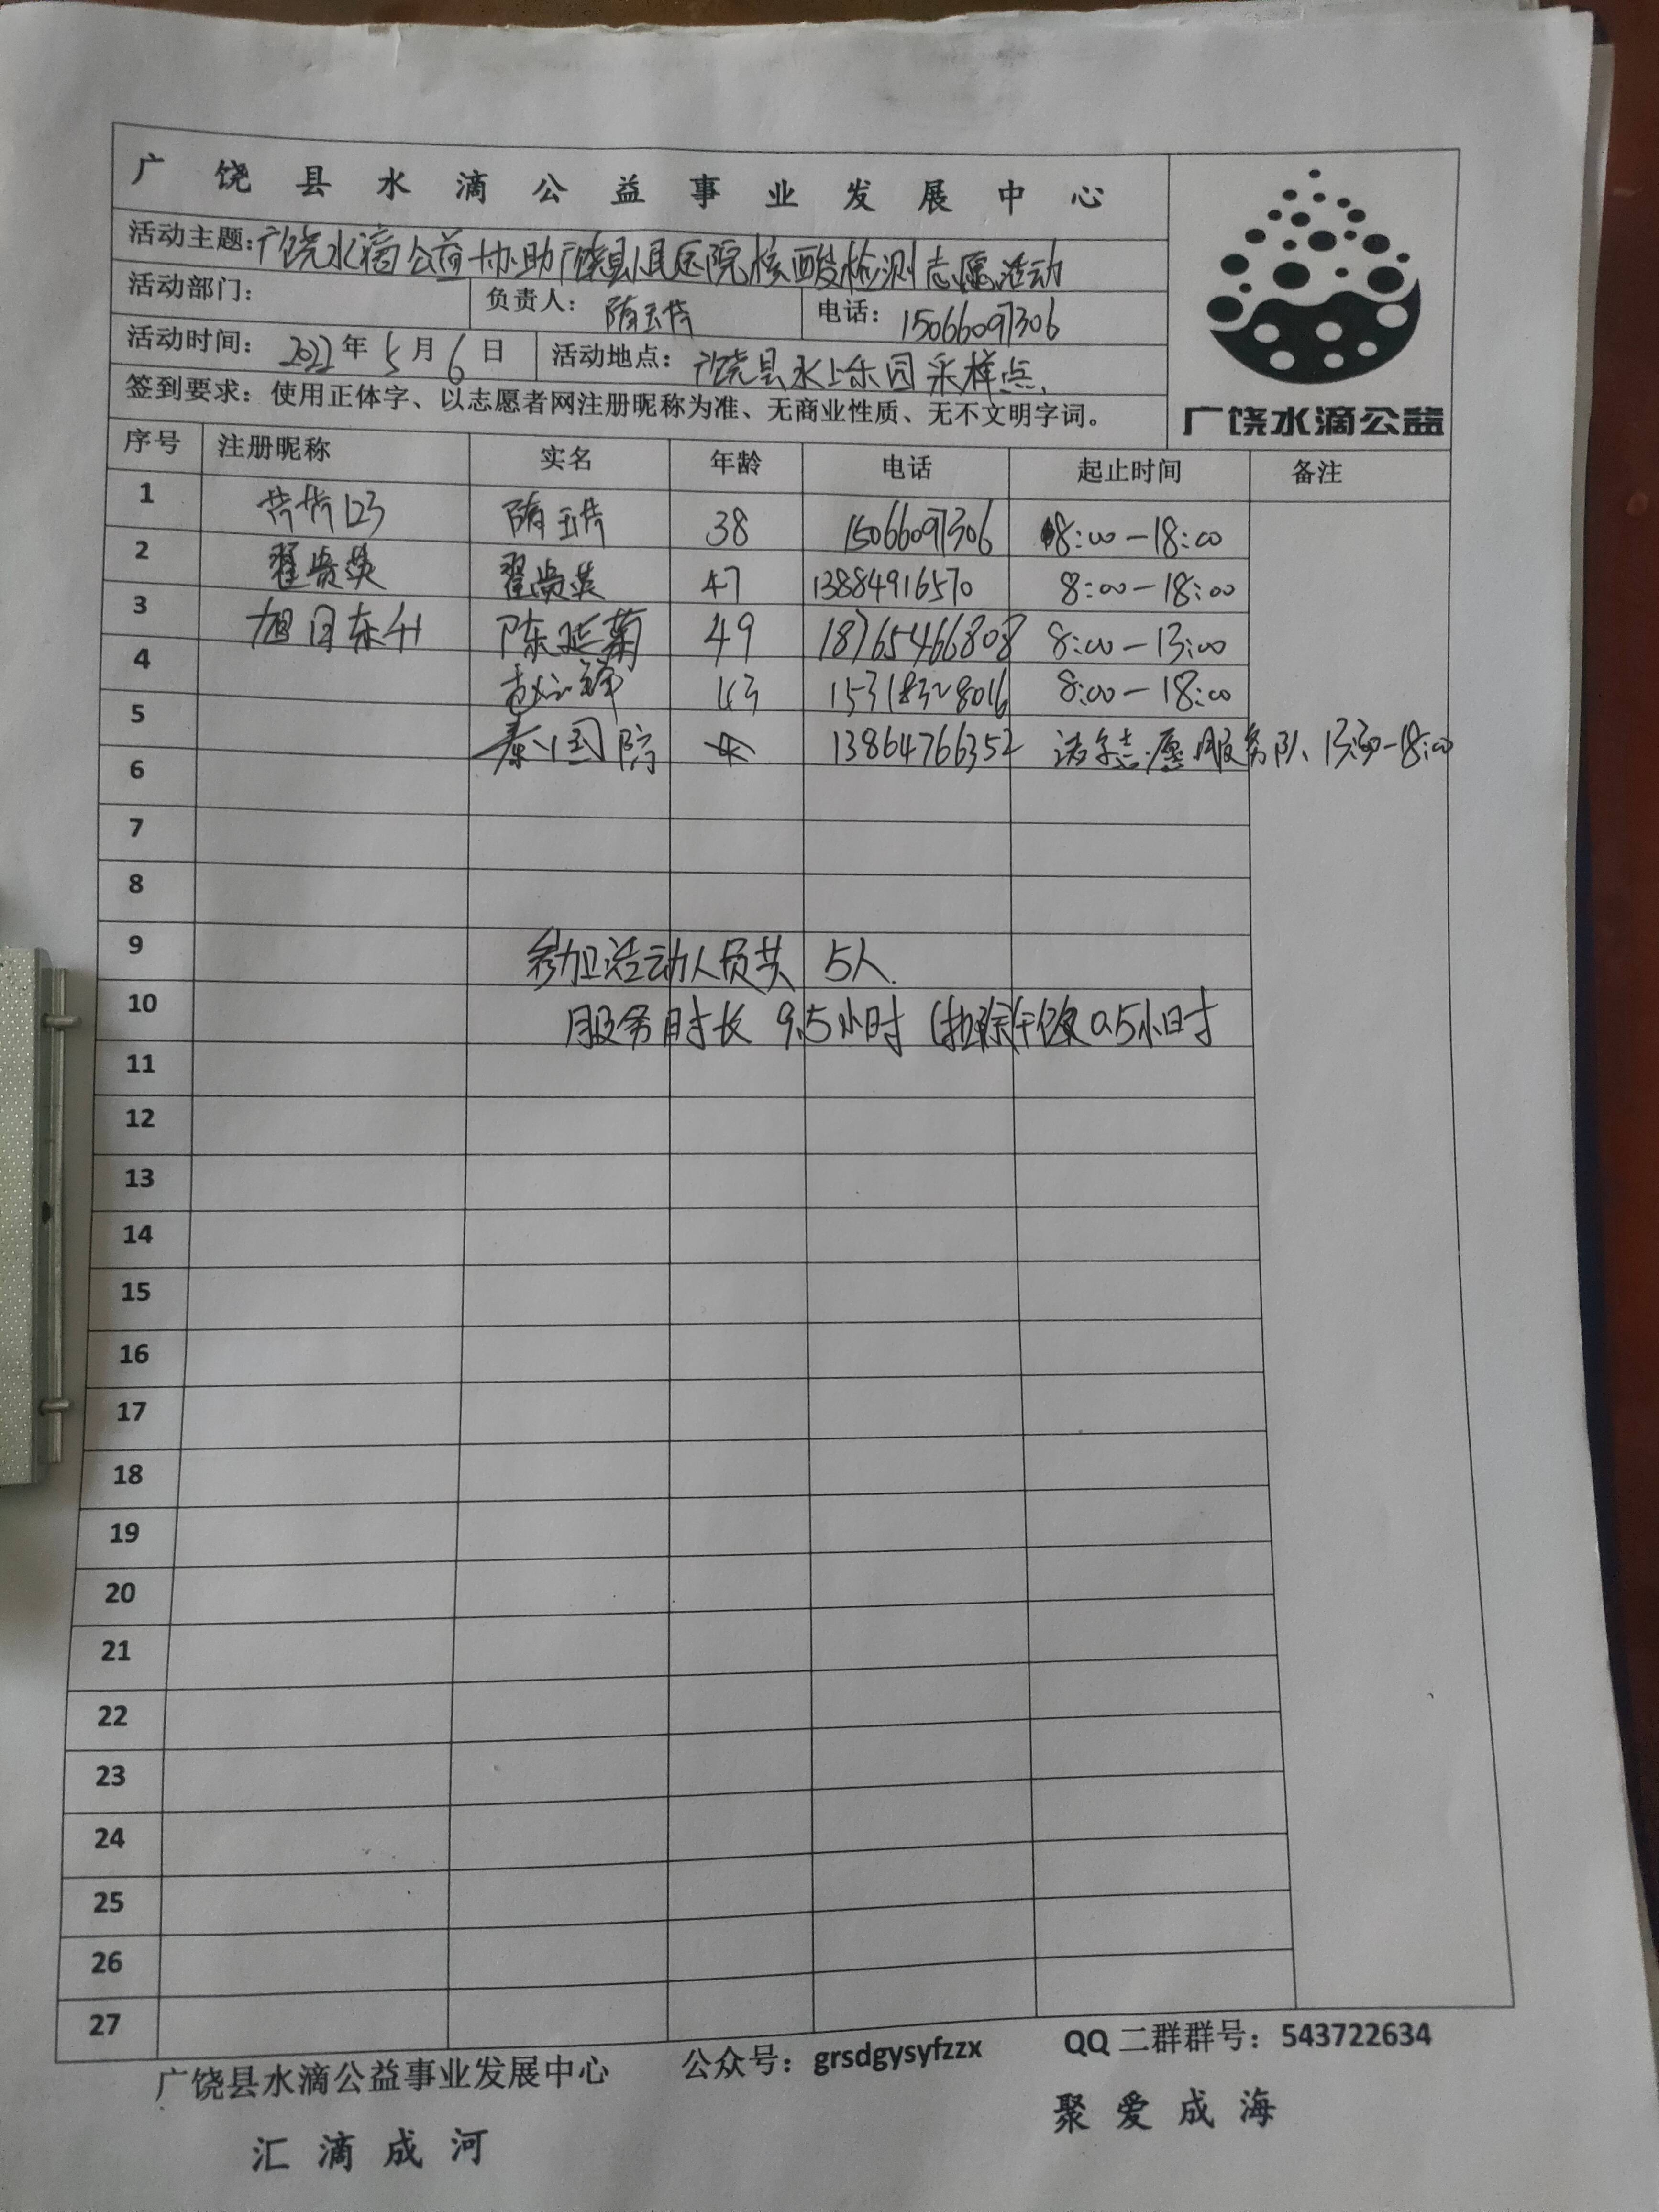 广饶县水滴公益事业发展中心
活动主题：广饶水滴公益协助广饶县人民医院核酸检测志愿活动
活动部门： 负责人：隋玉芹 电话：15066097306
活动时间：2022年5月6日 活动地点：广饶县水上乐园采样点、
签到要求：使用正体字、以志愿者网注册昵称为准、无商业性质、无不文明字词。
广饶水滴公益
序号 注册昵称 实名 年龄 电话 起止时间 备注
1 芹芹123 隋玉芹 38 15066097306 8:00-18:00
2 翟贵英 翟贵英 47 13884916570 8:00-18:00
3 旭日东升 陈延菊 49 18765466808 8:00-13:00
4 43 15318328016 8:00-18:00
5 秦国 13864766352 志愿服务队、13:30-18:00
6
7
8
9 参加活动人员共 5人.
10 服务时长 9.5小时（扣除午饭0.5小时
11
12
13
14
15
16
17
18
19
20
21
22
23
24
25
26
27
广饶县水滴公益事业发展中心 公众号：grsdgysyfzzx QQ二群群号：543722634
汇滴成河 聚爱成海